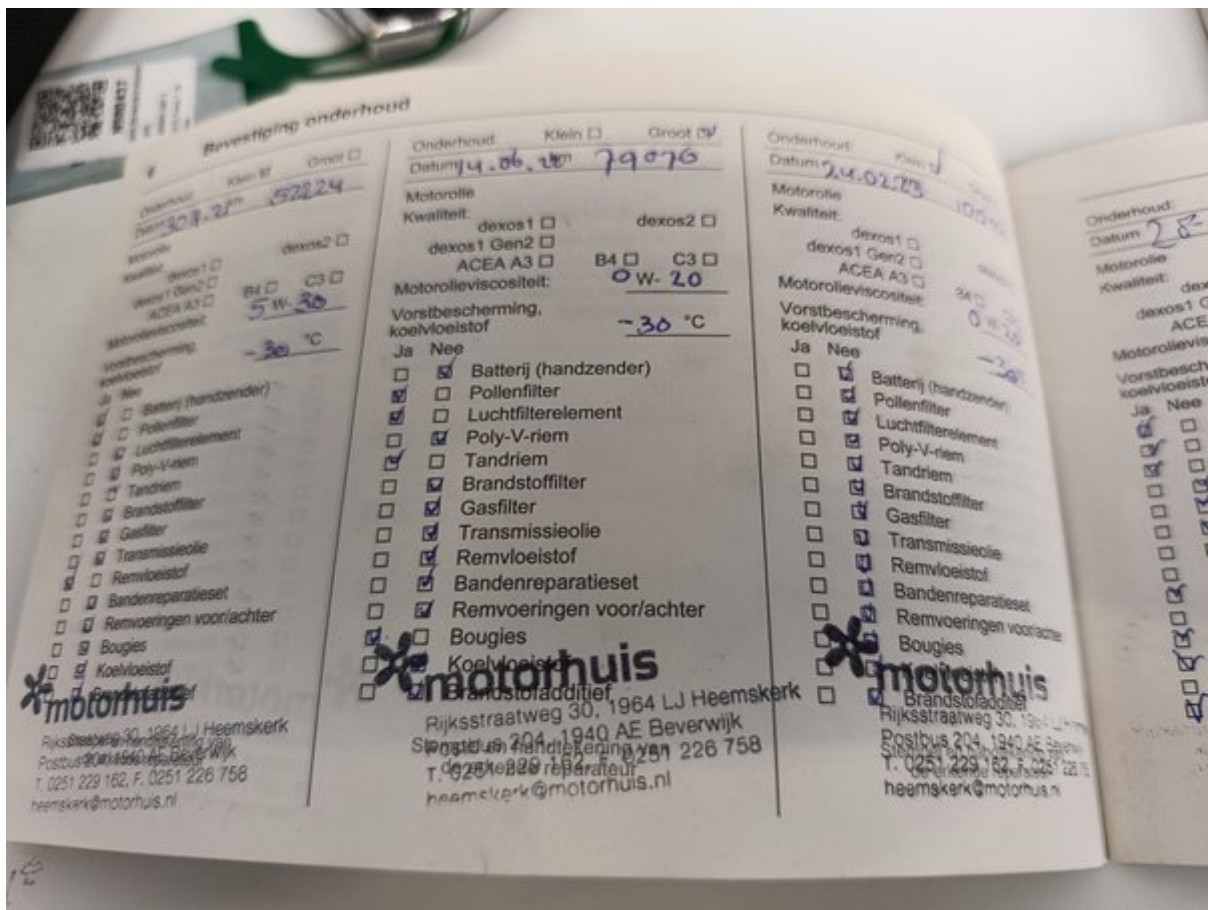 Bevestiging onderhoud
Onderhoud: Klein Groot
Datum km 52224
Motorolie
Kwaliteit:
dexos1 dexos2
dexos1 Gen2
ACEA A3 B4 C3
Motorolieviscositeit: 5 W- 30
Vorstbescherming,
koelvloeistof -30 °C
Ja Nee
Batterij (handzender)
Pollenfilter
Luchtfilterelement
Poly-V-riem
Tandriem
Brandstoffilter
Gasfilter
Transmissieolie
Remvloeistof
Bandenreparatieset
Remvoeringen voor/achter
Bougies
Koelvloeistof
motorhuis
1964 LJ Heemskerk
Postbus Beverwijk
T. 0251 229 162, F. 0251 226 758
heemskerk@motorhuis.nl
Onderhoud: Klein Groot
Datum 14.06. km 79076
Motorolie
Kwaliteit:
dexos1 dexos2
dexos1 Gen2
ACEA A3 B4 C3
Motorolieviscositeit: 0 W- 20
Vorstbescherming,
koelvloeistof -30 °C
Ja Nee
Batterij (handzender)
Pollenfilter
Luchtfilterelement
Poly-V-riem
Tandriem
Brandstoffilter
Gasfilter
Transmissieolie
Remvloeistof
Bandenreparatieset
Remvoeringen voor/achter
Bougies
Koelvloeistof
motorhuis
Brandstofadditief
Rijksstraatweg 30, 1964 LJ Heemskerk
Postbus 204, 1940 AE Beverwijk
Stempel en handtekening van
T. 0251 229 162, F. 0251 226 758
de erkende reparateur
heemskerk@motorhuis.nl
Onderhoud: Klein
Datum 24.02.23
Motorolie
Kwaliteit:
dexos1
dexos1 Gen2
ACEA A3 B4
Motorolieviscositeit: 0 W-20
Vorstbescherming,
koelvloeistof -30
Ja Nee
Batterij (handzender)
Pollenfilter
Luchtfilterelement
Poly-V-riem
Tandriem
Brandstoffilter
Gasfilter
Transmissieolie
Remvloeistof
Bandenreparatieset
Remvoeringen voor/achter
Bougies
motorhuis
Brandstofadditief
Rijksstraatweg 30,
Postbus 204, 1940 AE
T. 0251 229 162, F. 0251 226 75
heemskerk@motorhuis.nl
Onderhoud:
Datum 28-
Motorolie
Kwaliteit:
dex
dexos1 G
ACE
Motorolievis
Vorstbesch
koelvloeist
Ja Nee